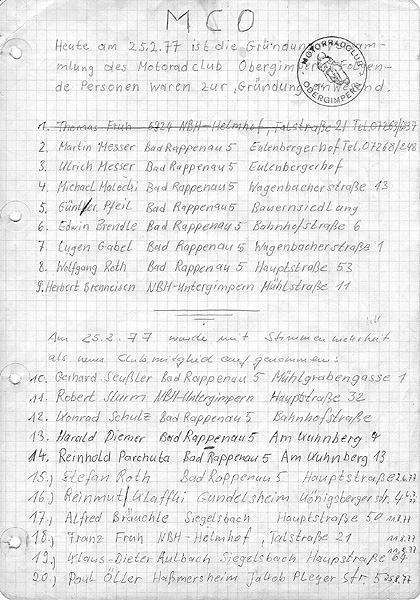 MCO
Heute am 25.2.77 ist die Gründungsversam-
mlung des Motoradclub Obergimpern. Folgen-
de Personen waren zur Gründung anwesend.
MOTORRADCLUB OBERGIMPERN
1. Thomas Fruh 6924 NBH-Helmhof, Talstraße 21 Tel. 07263/237
2. Martin Messer Bad Rappenau 5 Eulenbergerhof Tel. 07268/248
3. Ulrich Messer Bad Rappenau 5 Eulenbergerhof
4. Michael Malechi Bad Rappenau 5 Wagenbacherstraße 13
5. Günther Pfeil Bad Rappenau 5 Bauernsiedlung
6. Edwin Brendle Bad Rappenau 5 Bahnhofstraße 6
7. Eugen Gabel Bad Rappenau 5 Wagenbacherstraße 1
8. Wolfgang Roth Bad Rappenau 5 Hauptstraße 53
9. Herbert Brenneisen NBH-Untergimpern Mühlstraße 11
Am 25.2.77 wurde mit Stimmenmehrheit
als neue Clubmitglied aufgenommen:
10. Gerhard Seußler Bad Rappenau 5 Mühlgrabengasse 1
11. Robert Sturm NBH-Untergimpern Hauptstraße 32
12. Konrad Schulz Bad Rappenau 5 Bahnhofstraße
13. Harald Diemer Bad Rappenau 5 Am Kuhnberg 7
14. Reinhold Parchuta Bad Rappenau 5 Am Kuhnberg 13
15.) Stefan Roth Bad Rappenau 5 Hauptstraße
16.) Reinmut Klaffki Gundelsheim Königsbergerstr. 4
17.) Alfred Bräuchle Siegelsbach Hauptstraße 50
18.) Franz Fruh NBH-Helmhof, Talstraße 21
19.) Klaus-Dieter Aulbach Siegelsbach Haupstraße 64
20.) Paul Öller Haßmersheim Jakob Pleyer Str. 5